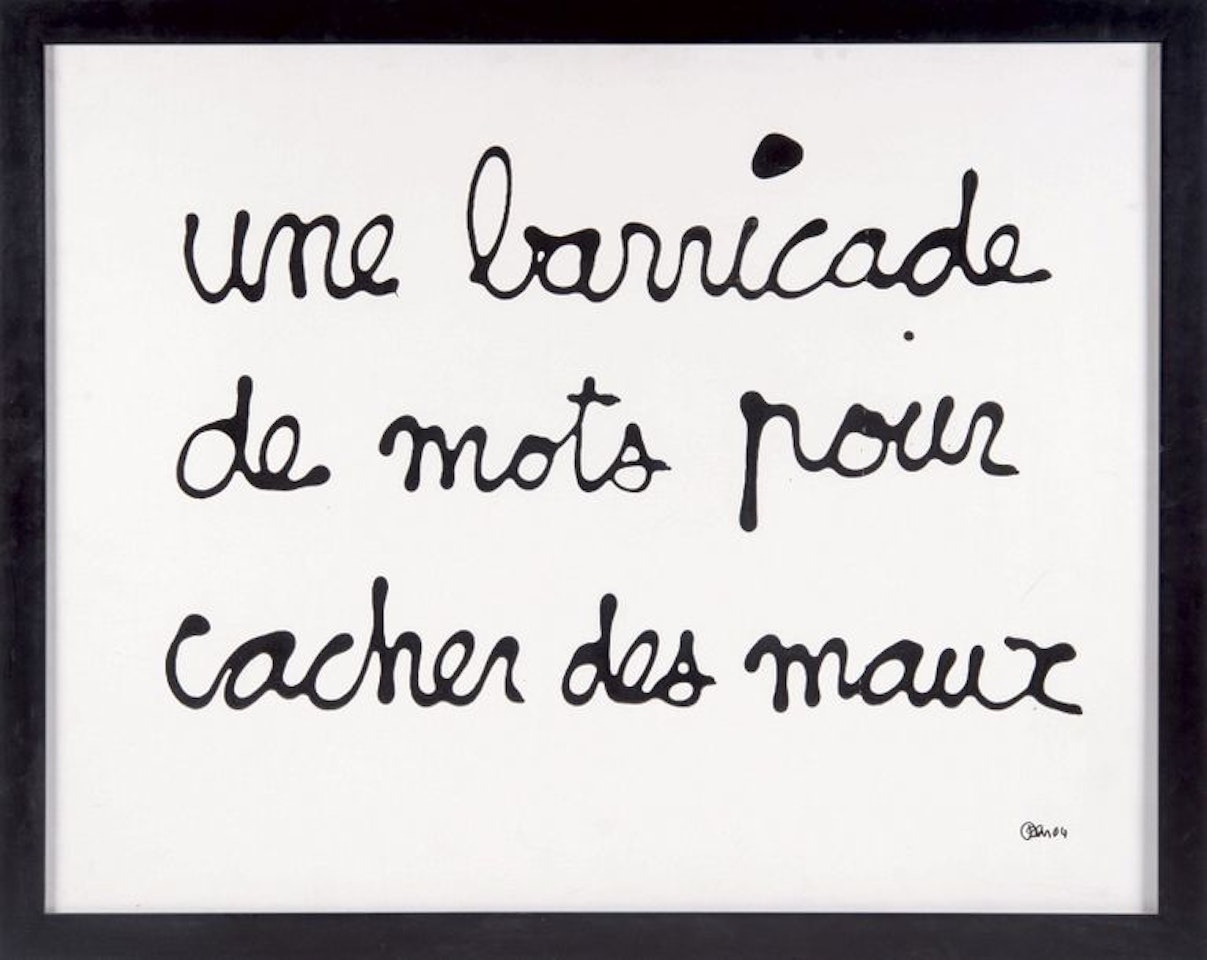 une barricade
de mots pour
cacher des maux
Ben 04